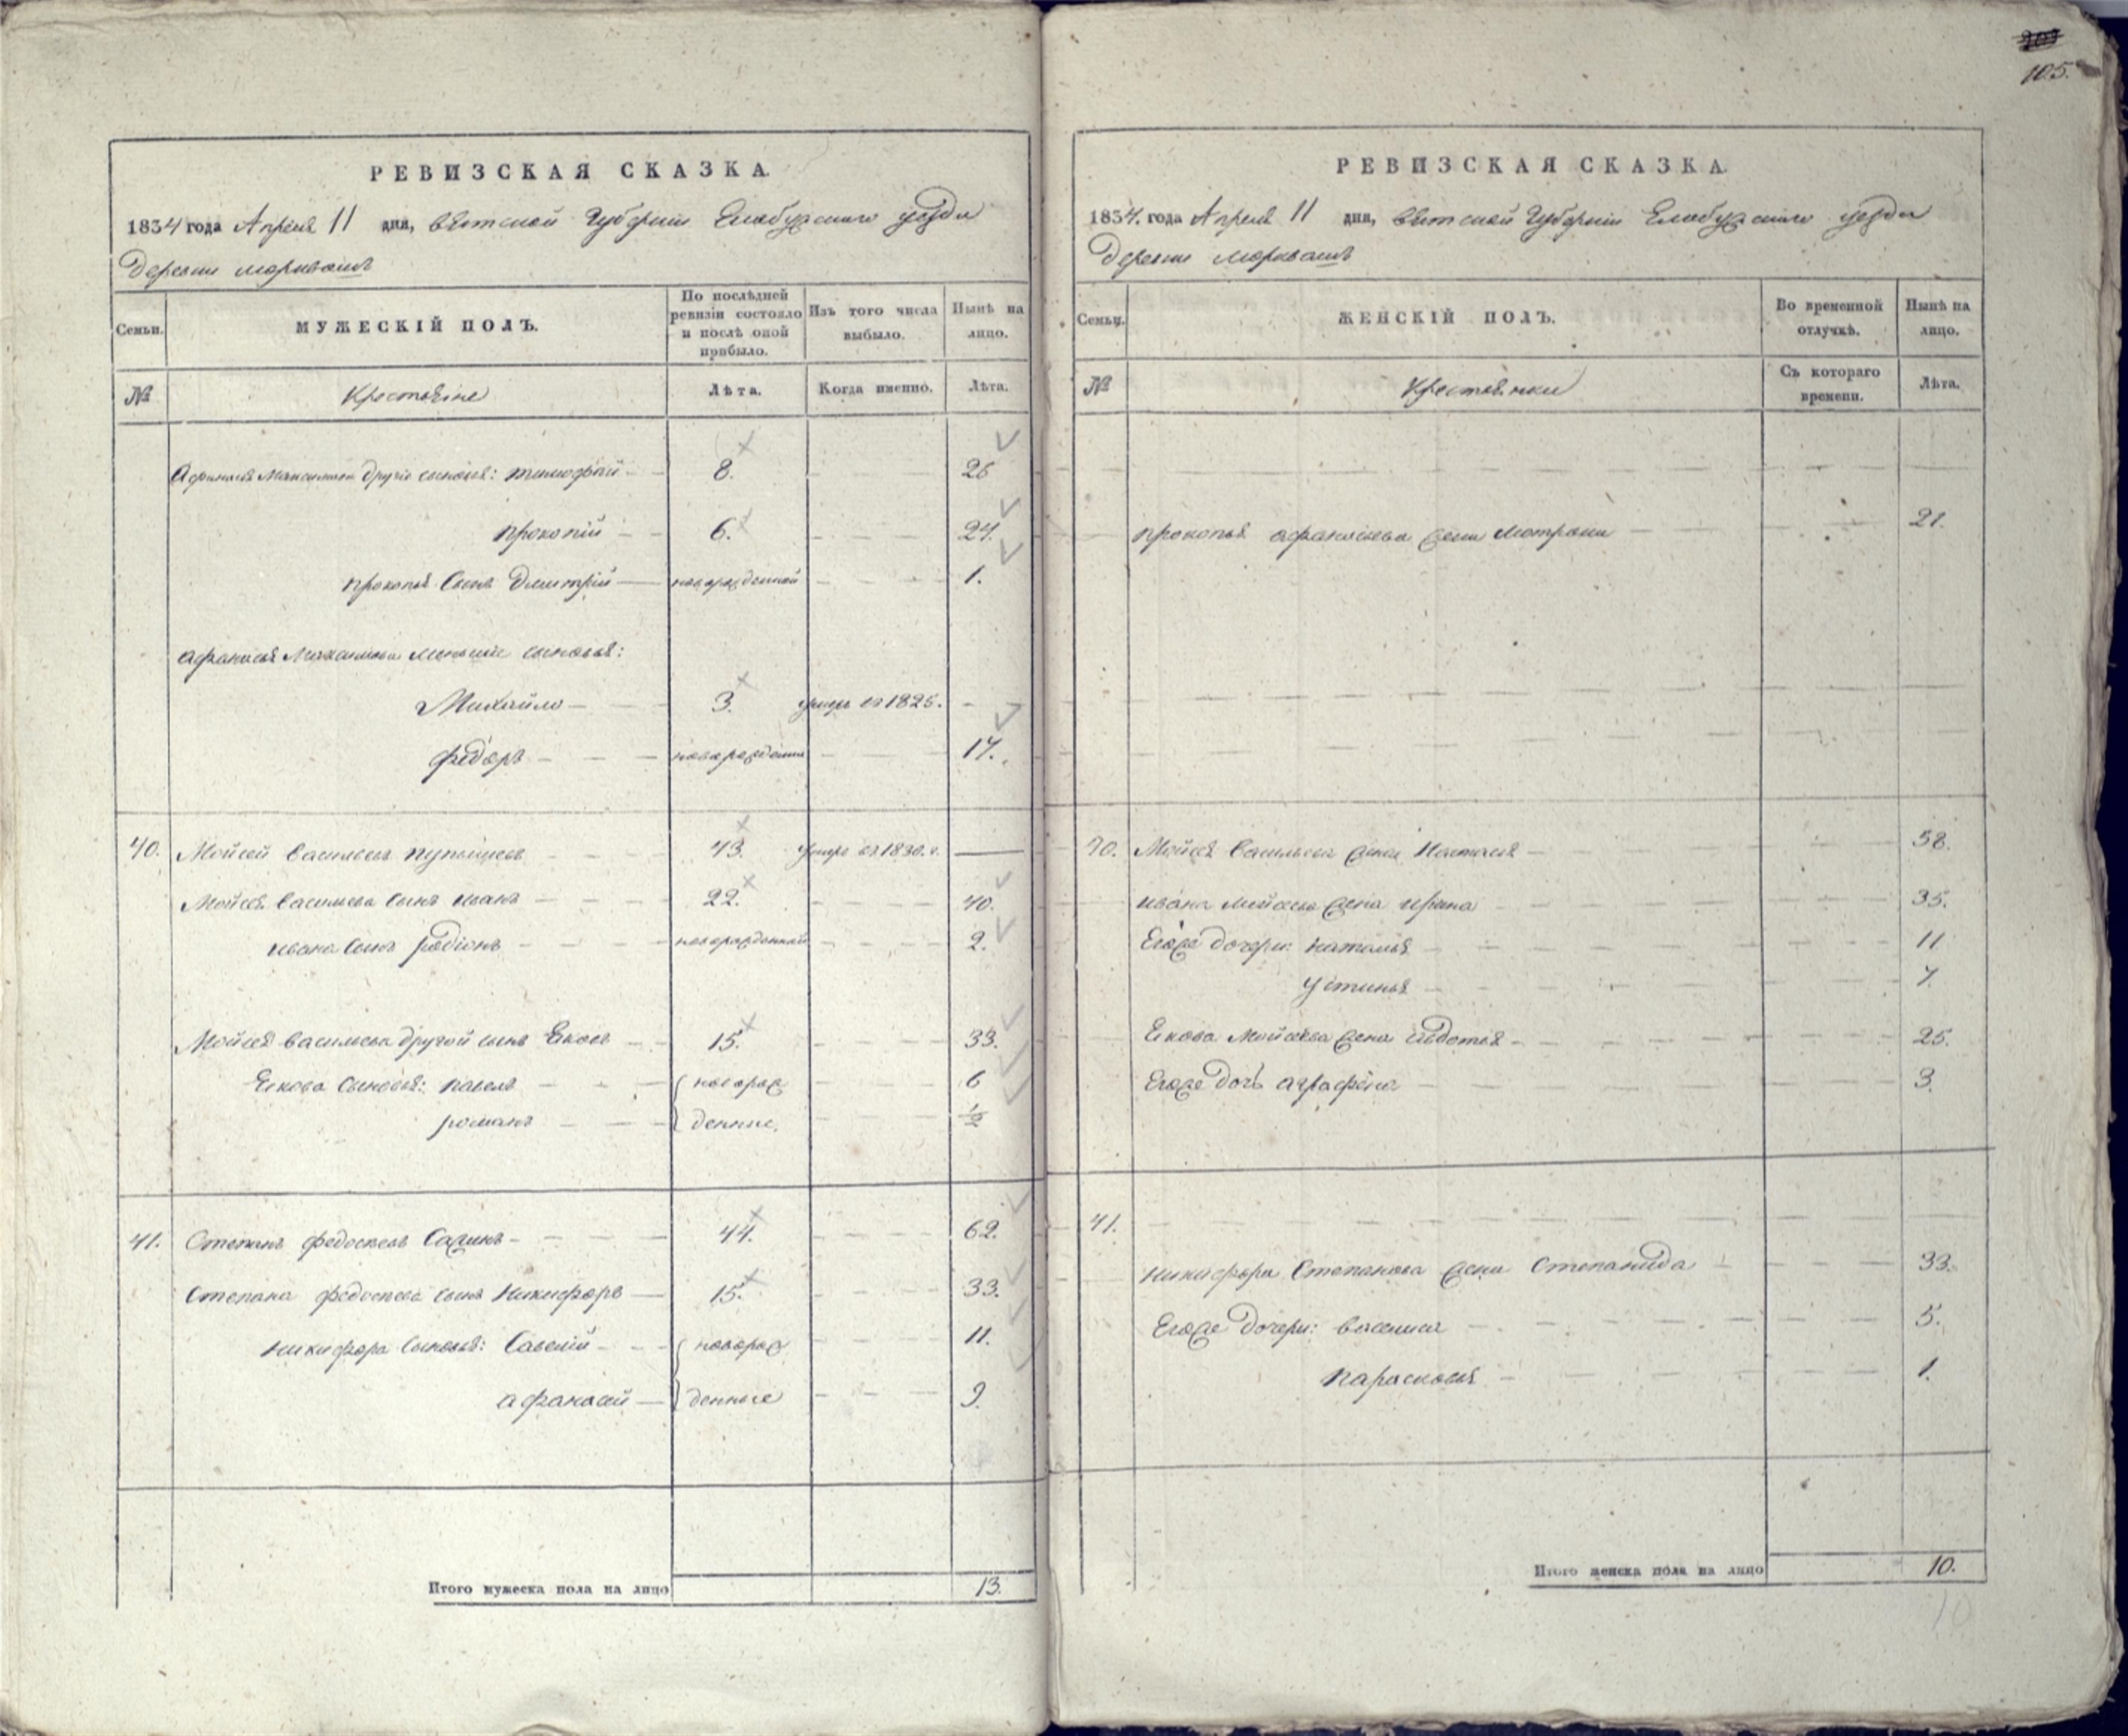 105.
РЕВИЗСКАЯ СКАЗКА.
1834 года Апреля 11 дня, Вятской Губернии Елабужскаго уезда
Деревни Марквашъ
Семьи. МУЖЕСКІЙ ПОЛЪ. По послѣдней ревизіи состояло и послѣ оной прибыло. Изъ того числа выбыло. Нынѣ на лицо.
№ Крестьяне Лѣта. Когда именно. Лѣта.
Афанасья другіе сыновья: тимофѣй 8. 26
прокопій 6. 24.
прокопья сынъ Дмитрій новорожденной 1.
афанасья меньшие сыновья:
Михайло 3. умеръ въ 1825.
федоръ новорожденны 17.
40. Мойсей Васильевъ 43. умеръ въ 1830. г.
Мойсея Васильева сынъ иванъ 22. 40.
ивана сынъ родіонъ новорожденной 2.
Мойсея васильева другой сынъ Ековъ 15. 33.
Екова сыновья: павелъ новорож 6
романъ денные, 1/2
41. Степанъ федосѣевъ 44. 62.
Степана федосѣева сынъ Никифоръ 15. 33.
никифора сыновья: Савелій новорож 11.
афанасей денные 9.
Итого мужеска пола на лицо 13.
РЕВИЗСКАЯ СКАЗКА.
1834. года Апреля 11 дня, Вятской Губерніи Елабужскаго уезда
Деревни Марквашъ
Семьи. ЖЕНСКІЙ ПОЛЪ. Во временной отлучкѣ. Нынѣ на лицо.
№ Крестьянки Съ котораго времени. Лѣта.
прокопья афанасьева жена Матрона 21.
40. Мойсея Васильева жена Настасья 58.
ивана мойсеева жена ирина 35.
Егоже дочери: наталья 11
устинья 7.
Екова Мойсеева жена авдотья 25.
Егоже дочь аграфена 3.
41.
никифора Степанова жена Степанида 33.
Егоже дочери: василиса 5.
парасковья 1.
Итого женска пола на лицо 10.
10